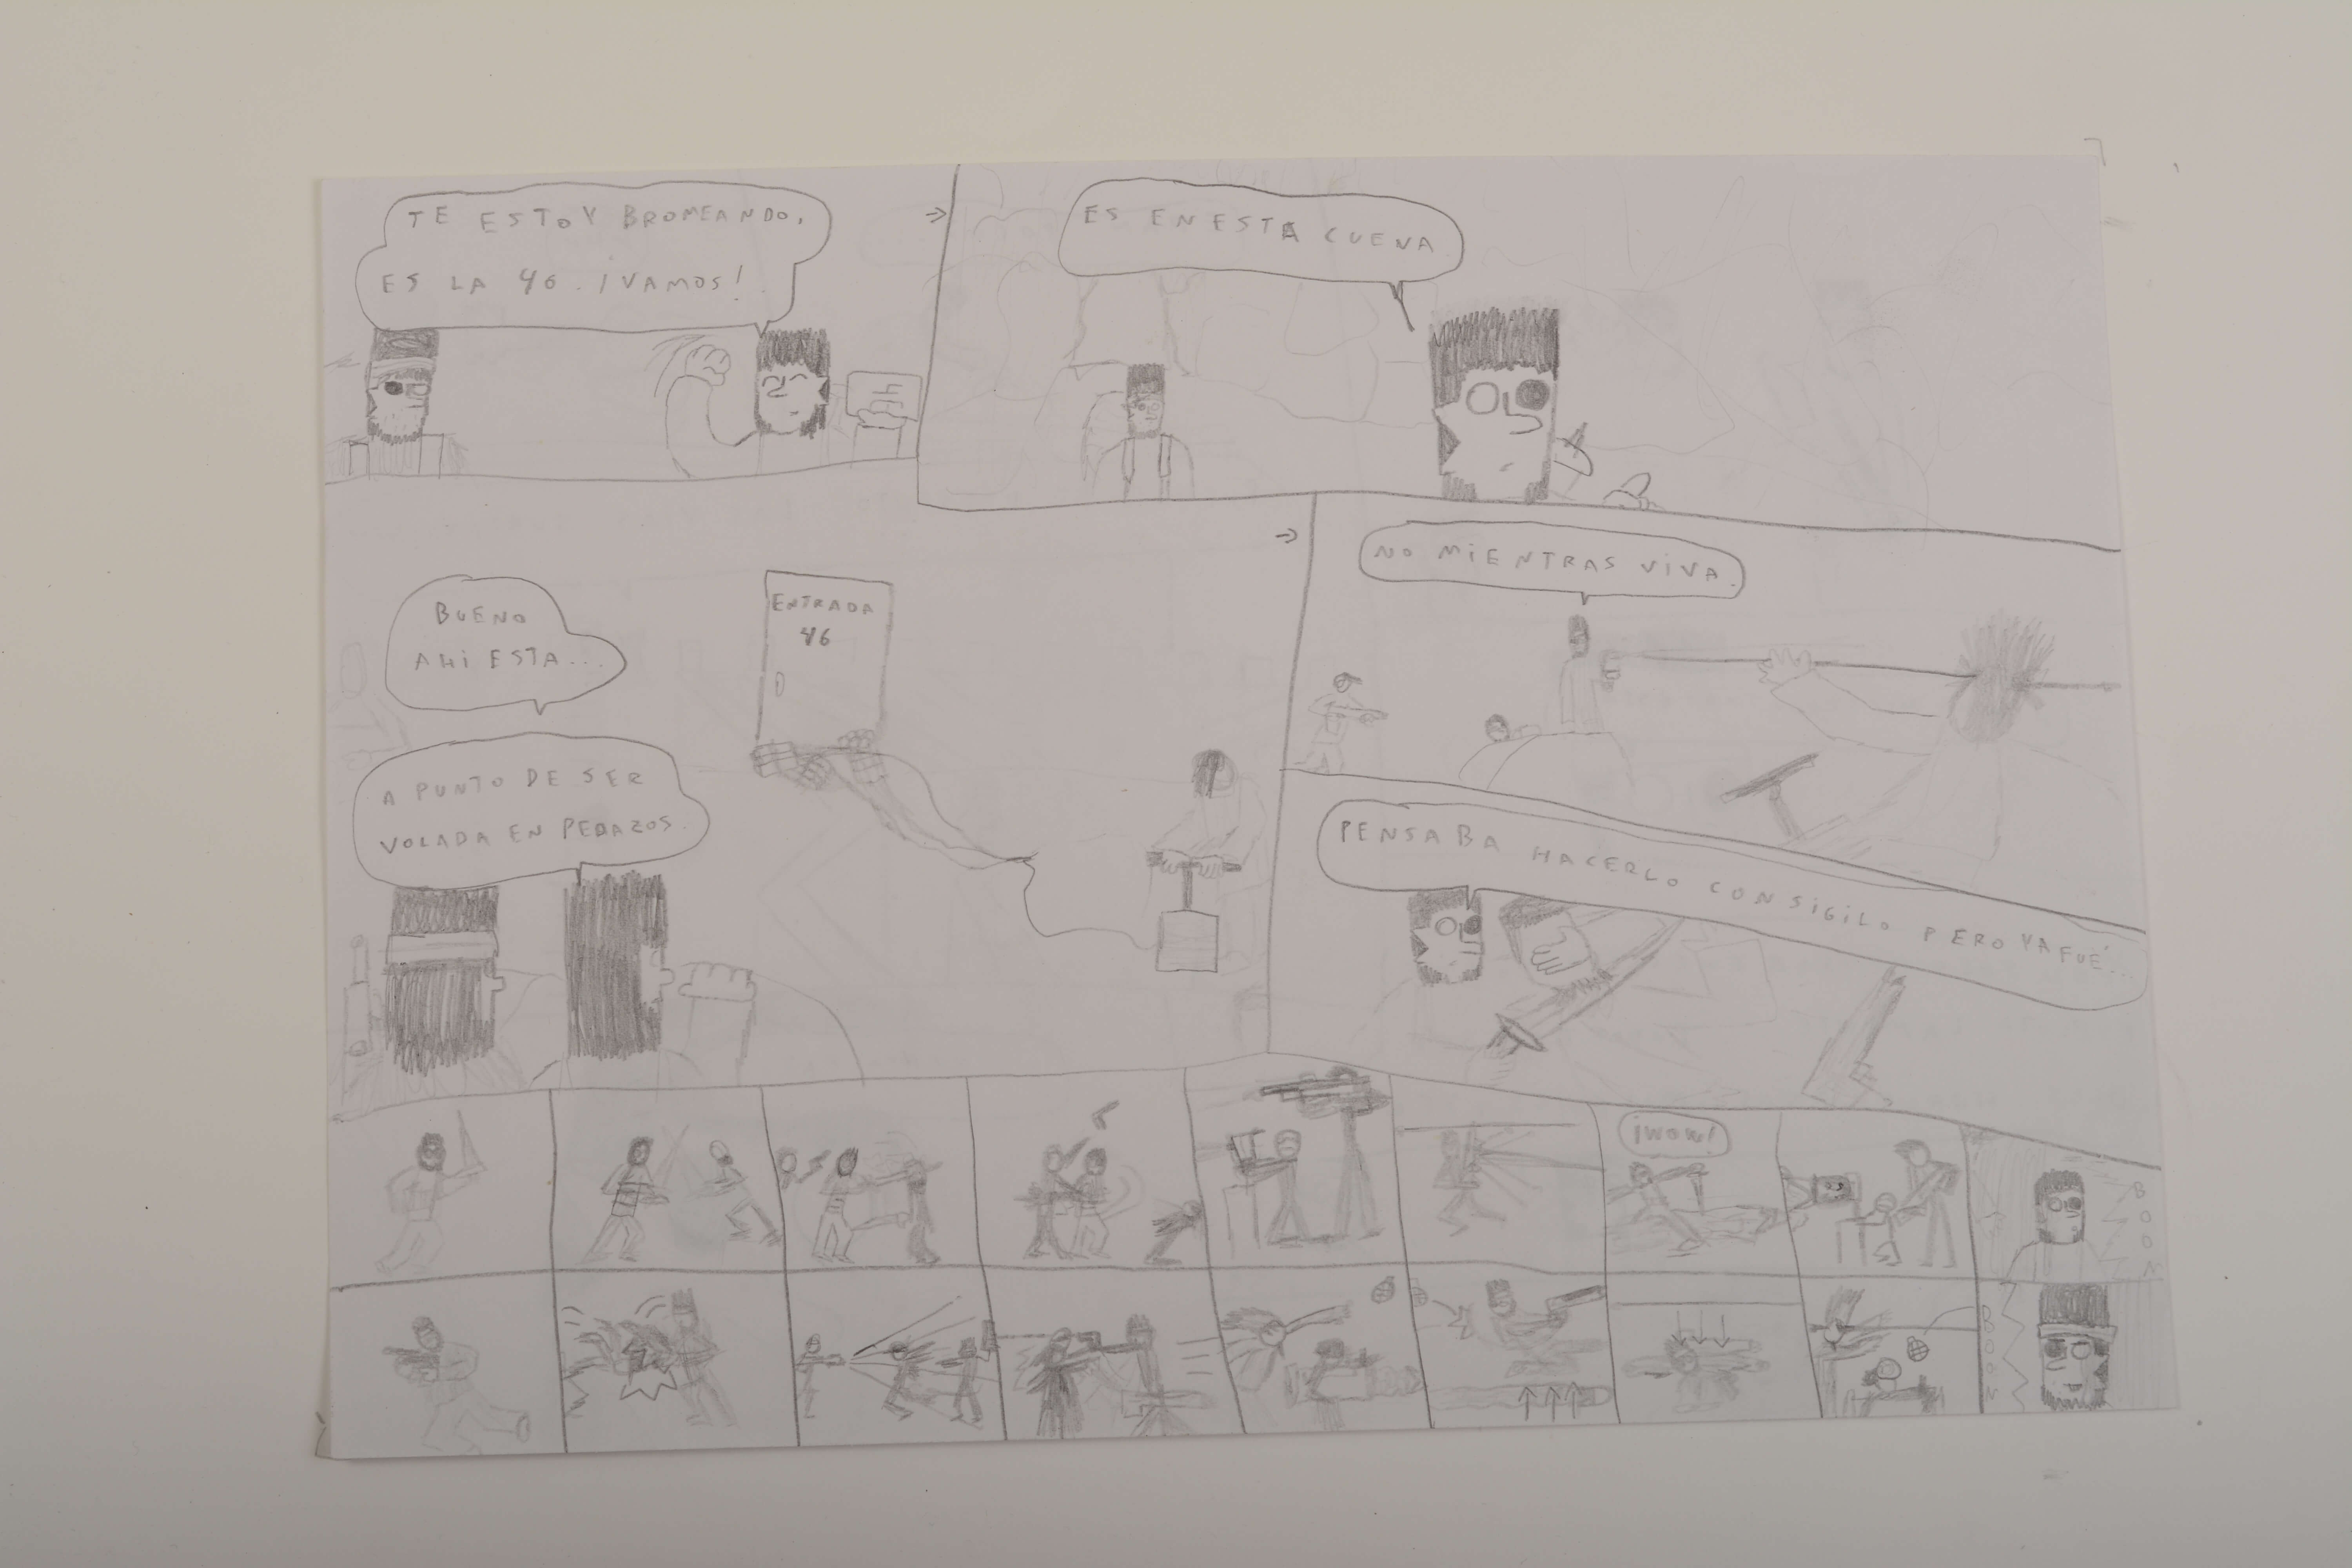 TE ESTOY BROMEANDO,
ES LA 46. ¡VAMOS!
ES EN ESTA CUEVA
BUENO
AHI ESTA...
A PUNTO DE SER
VOLADA EN PEDAZOS.
ENTRADA
46
NO MIENTRAS VIVA.
PENSABA HACERLO CON SIGILO PERO YA FUÉ...
¡WOW!
BOOM
BOOM